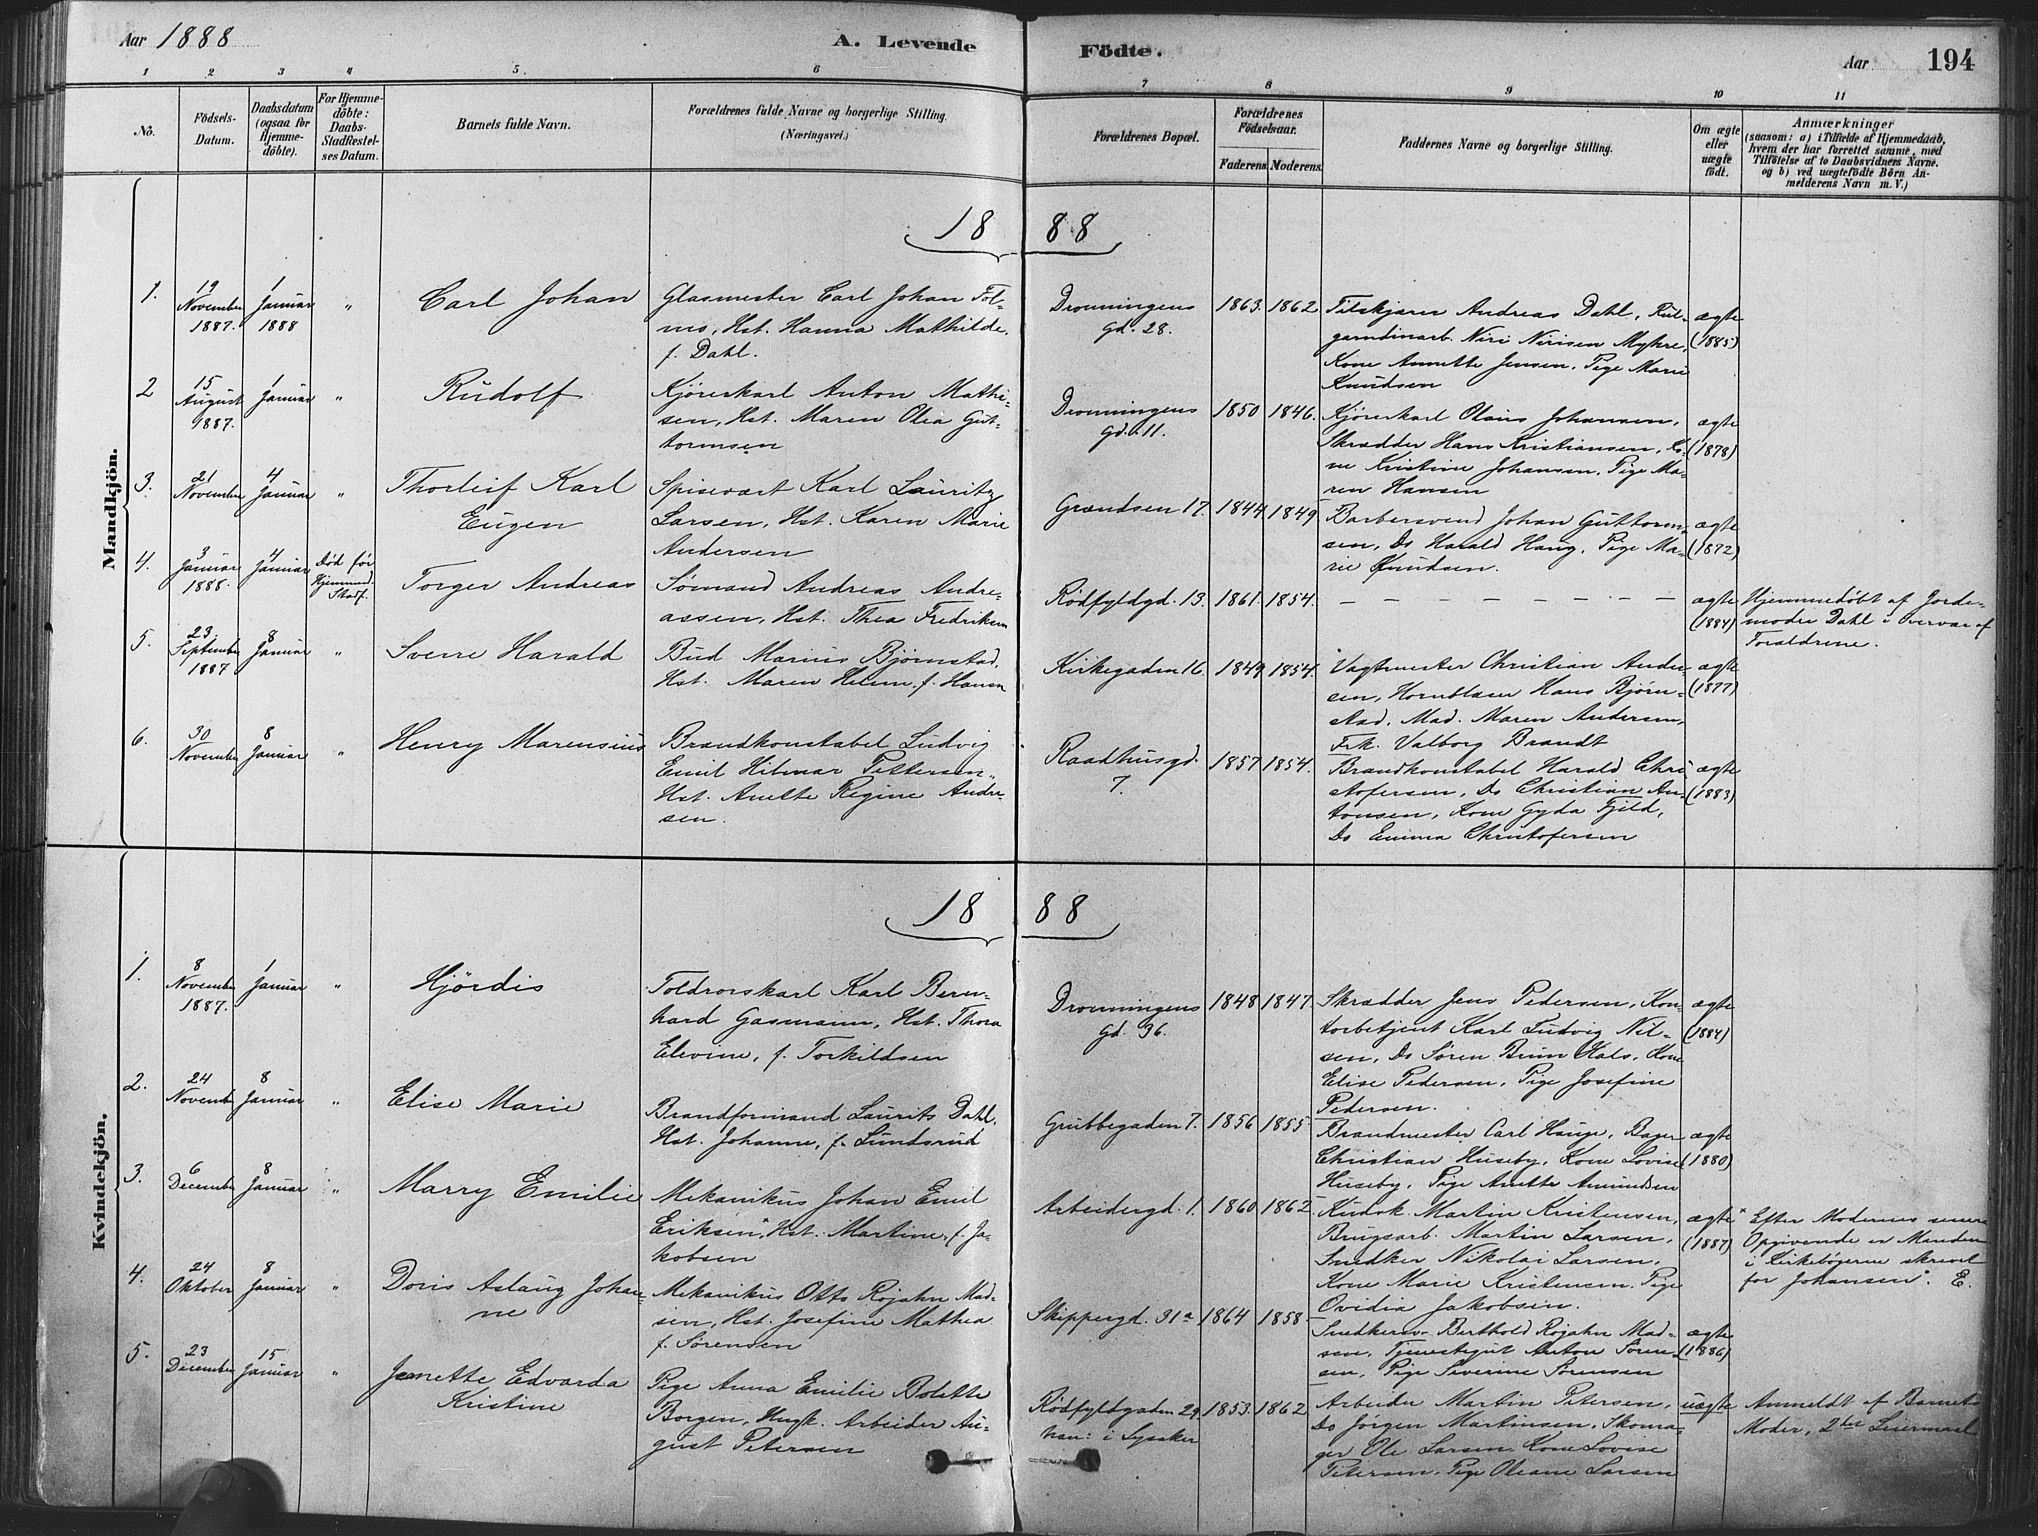 Aar 1888 A. Levende Födte. Aar 194
1 2 3 4 5. 6 7 8 9 10 11
No.
Födsels-
Datum.
Daabsdatum
(ogsaa for
Hjemme-
döbte).
For Hjemme-
döbte:
Daabs-
Stadfæstel-
ses Datum.
Barnets fulde Navn.
Forældrenes fulde Navne og borgerlige Stilling.
(Næringsvei.)
Forældrenes Bopæl.
Forældrenes
Födselsaar.
Faderens. Moderens.
Faddernes Navne og borgerlige Stilling.
Om ægte
eller
uægte
födt.
Anmærkninger
(saasom: a) i Tilfælde af Hjemmedaab,
hvem der har forrettet samme, med
Tilföielse af to Daabsvidners Navne.
og b) ved uægtefödte Börn An-
melderens Navn m. V.)
Mandkjön.
18 88
1.
19
November
1887.
1
Januar
1888
"
Carl Johan
Glasmester Carl Johan Fol-
mo, Hst. Hanna Mathilde
f. Dahl.
Dronningens
Gd. 28.
1863. 1862
Filskjærer Andreas Dahl,
Niri Nirisen Myhre,
Kone Annette Jensen, Pige Marie
Knudsen
ægte
(1885)
2
15
August
1887.
1
Januar
"
Rudolf
Kjørerkarl Anton Mathi-
sen, Hst. Maren Olea Gut-
tormsen
Dronningens
Gd. 11.
1850 1846.
Kjørerkarl Olaus Johansen,
Skrædder Hans Kristiansen, Ko-
ne Kristine Johansen, Pige Ma-
ren Hansen
ægte
(1878)
3.
21
November
4
Januar
"
Thorleif Karl
Eugen
Spisevært Karl Lauritz
Larsen, Hst. Karen Marie
Andersen
Grændsen 17. 1844 1849
Barbersvend Johan Guttorm-
sen, Do Harald Haug, Pige Ma-
rie Knudsen.
ægte
(1872)
4.
3
Januar
1888.
4
Januar
Død før
Hjemmed.
Stadf.
Torger Andreas
Sømand Andreas Andre-
assen, Hst. Thea Fredriksen
Rødfyldgd. 13. 1861. 1854.
— — — — — — —
ægte
(1884)
Hjemmedøbt af Jorde-
moder Dahl i Overvær af
Forældrene.
5.
23
September
1887
8
Januar
"
Sverre Harald
Bud Marius Bjørnstad,
Hst. Maren Helene, f. Hansen
Kirkegaden 16. 1849 1854.
Vagtmester Christian Ander-
sen, Hornblæser Hans Bjørn-
stad, Mad. Maren Andersen,
Frk. Valborg Brandt
ægte
(1877)
6.
30
November
8
Januar
"
Henry Marensius
Brandkonstabel Ludvig
Emil Hilmar Pettersen,
Hst. Anette Regine Andre-
sen.
Raadhusgd.
7.
1857 1854.
Brandkonstabel Harald Chri-
stofersen, Do Christian An-
tonsen, Kone Gyda Fjeld,
Do Emma Christofersen
ægte
(1883)
Kvindekjön.
18 88
1.
8
November
1887.
1
Januar
"
Hjördis
Toldrorskarl Karl Bern-
hard Gasmann, Hst. Thora
Elevine, f. Torkildsen
Dronningens
Gd. 36.
1848 1847.
Skrædder Jens Pedersen, Kon-
torbetjent Karl Ludvig Nil-
sen, Do Søren Brun Hals, Kone
Elise Pedersen, Pige Josefine
Pedersen.
ægte
(1884)
2.
24
Novembr
8
Januar
"
Elise Marie
Brandformand Laurits Dahl,
Hst. Johanne, f. Lundsrud
Grubbegaden 7. 1856 1855
Brandmester Carl Hauge, Bager
Christian Huseby, Kone Lovise
Huseby, Pige Anette Amundsen
ægte
(1880)
3.
6
December
8
Januar
"
Marry Emilie
Mekanikus Johan Emil
Eriksen", Hst. Martine, f. Ja-
kobsen
Arbeidergd. 1. 1860 1862
Kudsk Martin Kristensen,
Brugsarb. Martin Larsen,
Snedker Nikolai Larsen,
Kone Marie Kristensen. Pige
Ovidia Jakobsen.
ægte
(1887)
" Efter Moderens senere
Opgivende er Manden
i Kirkebøgerne skrevet
for "Johansen". E.
4.
24
Oktober
8
Januar
"
Doris Aslaug Johan-
ne
Mekanikus Otto Røjahn Mad-
sen, Hst. Josefine Mathea
f. Sørensen
Skippergd. 31a 1864 1858
Snedkersv. Berthold Røjahn Mad-
sen, Anton Søren-
sen, Pige Severine Sørensen
ægte
(1886)
5.
23
December
15
Januar
"
Jenette Edvarda
Kristine
Pige Anna Emilie Bolette
Borgen, Ungk. Arbeider Au-
gust Petersen
Rødfyldgaden 29,
han: i Lysaker
1853. 1862
Arbeider Martin Petersen,
Do Jørgen Martinsen, Skoma-
ger Ole Larsen, Kone Lovise
Petersen, Pige Oleane Larsen
uægte
Anmeldt af Barnets
Moder, 2det Leiermaal